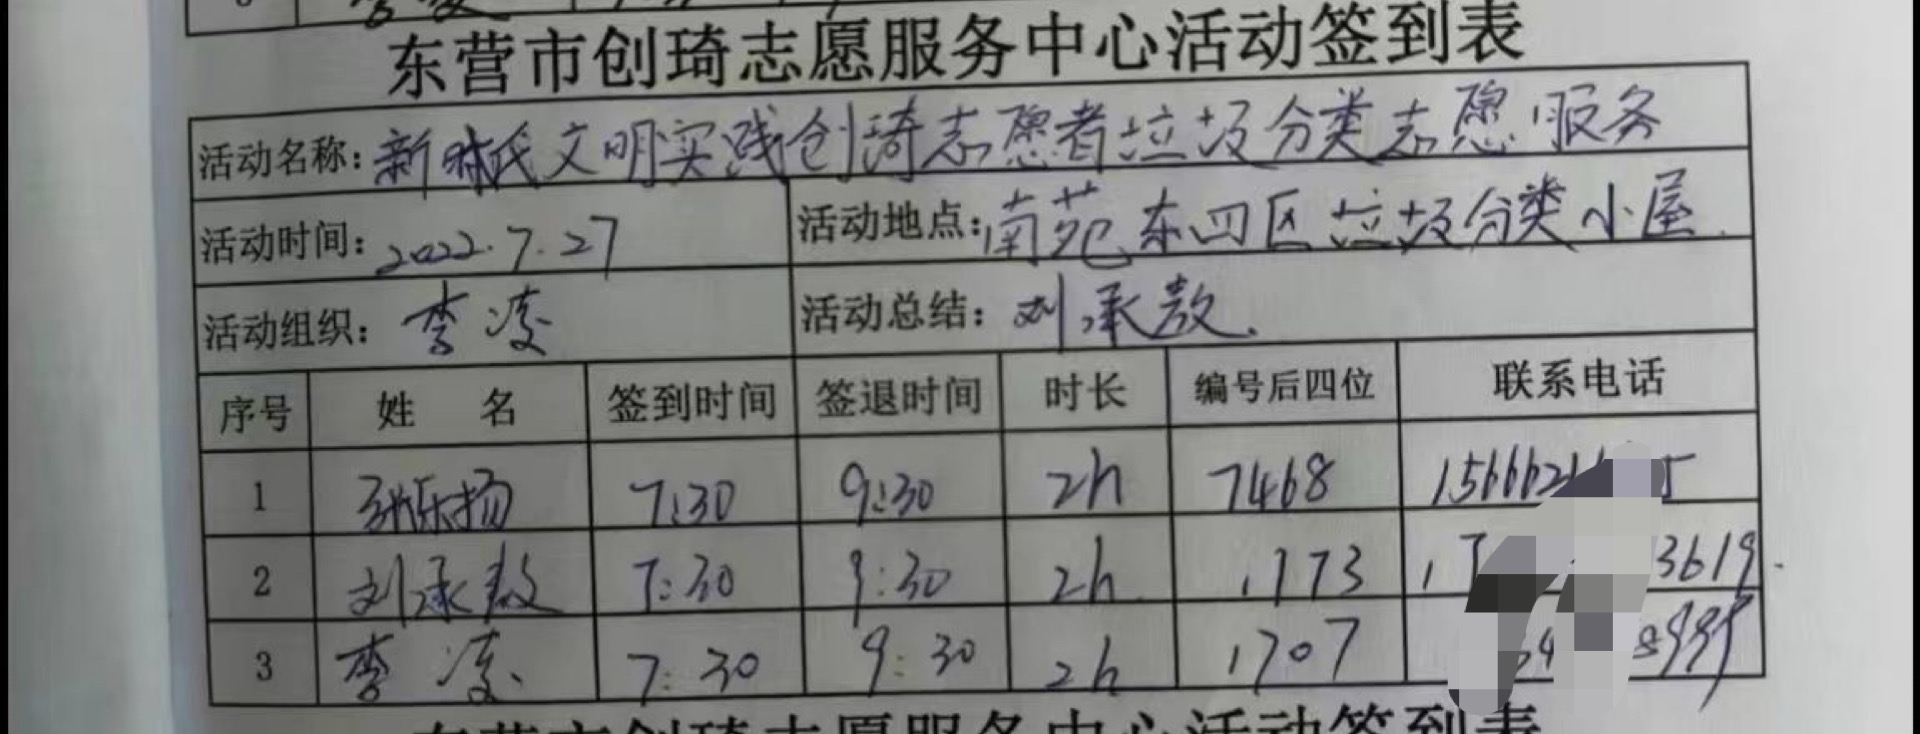 东营市创琦志愿服务中心活动签到表
活动名称：新时代文明实践创琦志愿者垃圾分类志愿服务
活动时间：2022.7.27 活动地点：南苑东四区垃圾分类小屋
活动组织：李凌 活动总结：刘承敖
序号 姓名 签到时间 签退时间 时长 编号后四位 联系电话
1 张乐扬 7:30 9:30 2h 7468
2 刘承敖 7:30 9:30 2h 1773 3619
3 李凌 7:30 9:30 2h 1707
东营市创琦志愿服务中心活动签到表